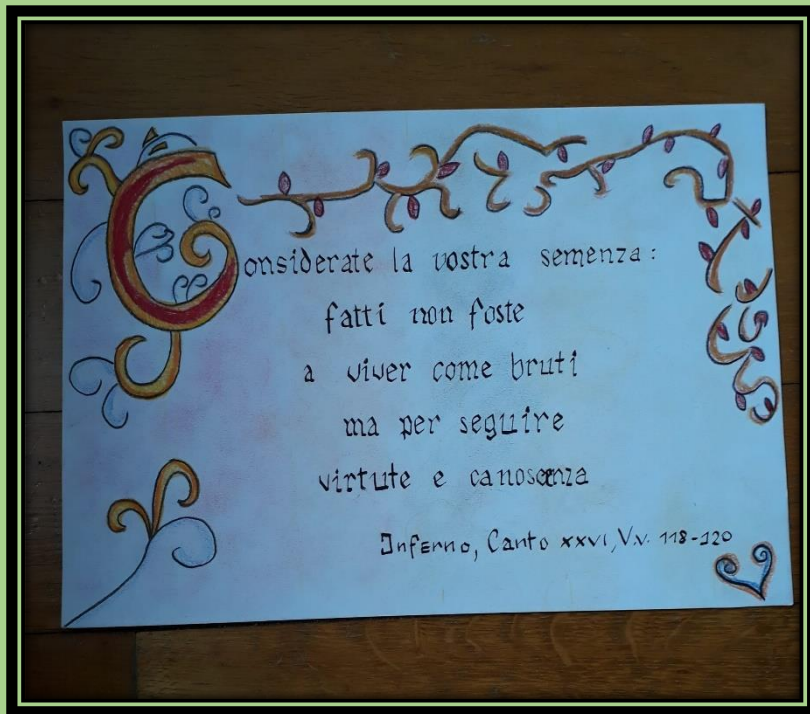 Considerate la vostra semenza:
fatti non foste
a viver come bruti
ma per seguire
virtute e canoscenza
Inferno, Canto XXVI, V.v. 118-120